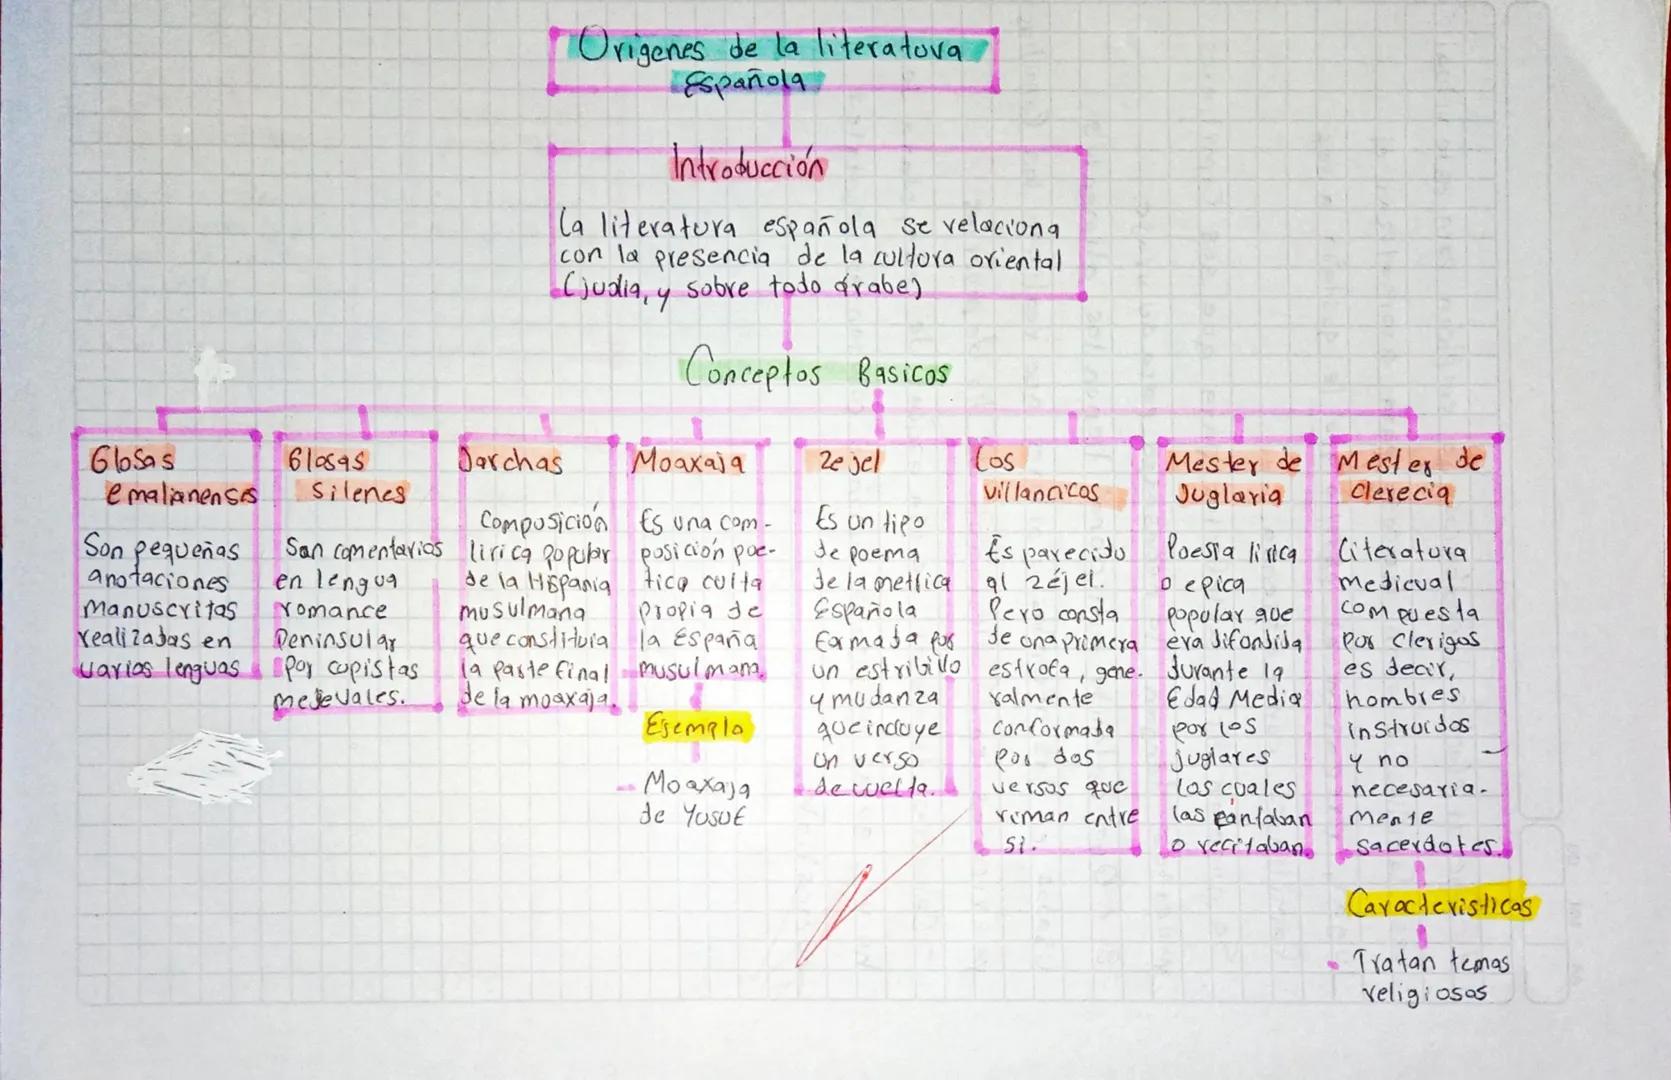 Origenes de la literatura
Española
Introducción
La literatura española se relaciona
con la presencia de la cultura oriental
(judia, y sobre todo árabe)
Conceptos Basicos
Glosas
emalianenses
Son pequeñas
anotaciones
manuscritas
realizadas en
varios lenguas
Glosas
Silenes
San comentarios
en lengua
romance
Peninsular
por copistas
medevales.
Jarchas
Composición
lirica popular
de la Hispania
musulmana
que constituia
la parte final
de la moaxaja.
Moaxaja
Es una com-
posición poe-
tica culta
propia de
la España
musulmana.
Ejemplo
- Moaxaja
de Yusuf
Zejel
Es un tipo
de poema
de la metrica
Española
formada por
un estribillo
y mudanza
que incluye
un verso
de vuelta.
Los
villancicos
Es parecido
al zéjel.
Pero consta
de una primera
estrofa, gene-
ralmente
conformada
por dos
versos que
riman entre
si.
Mester de
Juglaria
Poesia lirica
o epica
popular que
era difondida
durante la
Edad Media
por los
juglares
los cuales
las cantaban
o recitaban.
Mester de
clerecia
Literatura
medieval
compuesta
por clerigos
es decir,
hombres
instruidos
y no
necesaria-
mente
sacerdotes.
Caracteristicas
• Tratan temas
religiosos